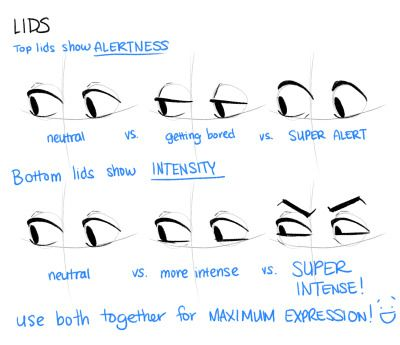 LIDS
Top lids show ALERTNESS
neutral vs. getting bored vs. SUPER ALERT
Bottom lids show INTENSITY
neutral vs. more intense vs. SUPER
INTENSE!
use both together for MAXIMUM EXPRESSION!